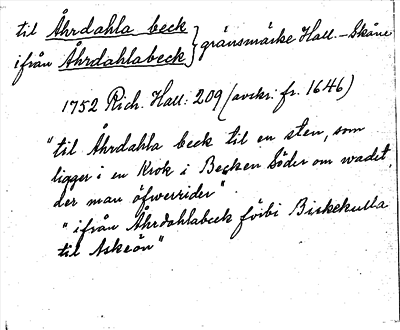 til Åhrdahla beck
ifrån Åhrdahlabeck } gränsmärke Hall. – Skåne
1752 Rich. Hall: 209 (avskr. fr. 1646)
"til Åhrdahla beck til en sten, som
ligger i en Krok i Becken Söder om wadet,
der man öfwerrider".
"ifrån Åhrdahlabeck förbi Birkekulla
til Askeön"